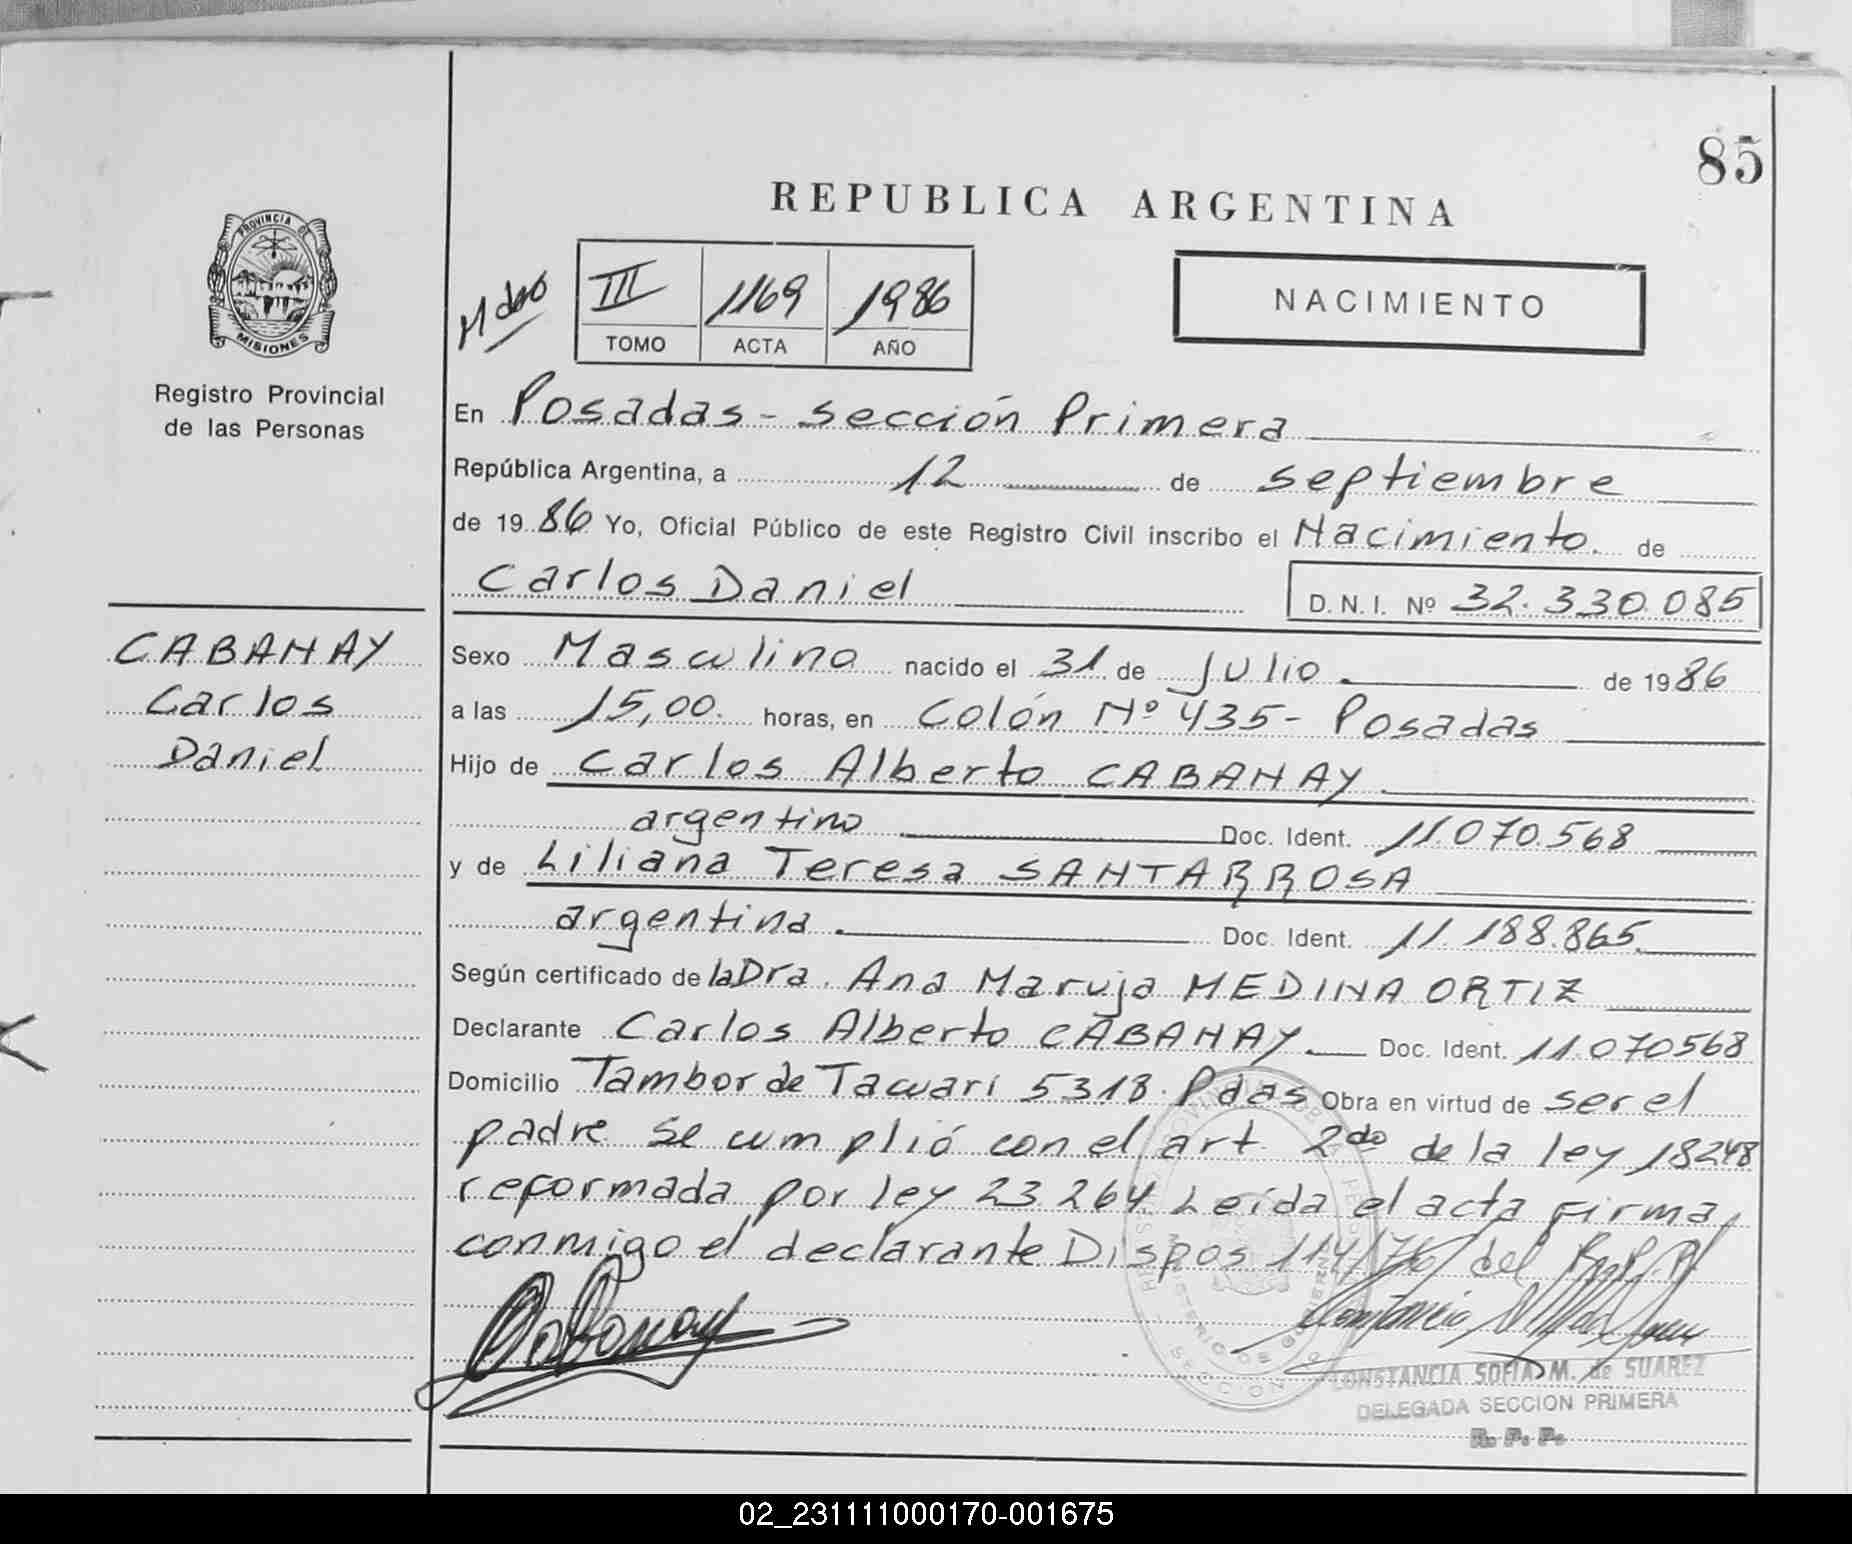 85
REPUBLICA ARGENTINA
PROVINCIA DE
MISIONES
Registro Provincial
de las Personas
III 1169 1986
TOMO ACTA AÑO
NACIMIENTO
En Posadas - Sección Primera
República Argentina, a 12 de septiembre
de 1986 Yo, Oficial Público de este Registro Civil inscribo el Nacimiento. de
Carlos Daniel D.N.I. Nº 32.330.085
CABANAY
Carlos
Daniel
Sexo Masculino nacido el 31 de Julio de 1986
a las 15,00. horas, en Colón Nº 435 - Posadas
Hijo de Carlos Alberto CABANAY
argentino Doc. Ident. 11.070.568
y de Liliana Teresa SANTARROSA
argentina Doc. Ident. 11.188.865.
Según certificado de la Dra. Ana Maruja MEDINA ORTIZ
Declarante Carlos Alberto CABANAY Doc. Ident. 11.070568
Domicilio Tambor de Tacuarí 5318. Pdas Obra en virtud de ser el
padre se cumplió con el art. 2do de la ley 18248
reformada por ley 23.264. Leída el acta firma
conmigo el declarante Dispos 114/76 del R.P.P.
CONSTANCIA SOFIA M. de SUAREZ
DELEGADA SECCION PRIMERA
R. P. P.
02_231111000170-001675